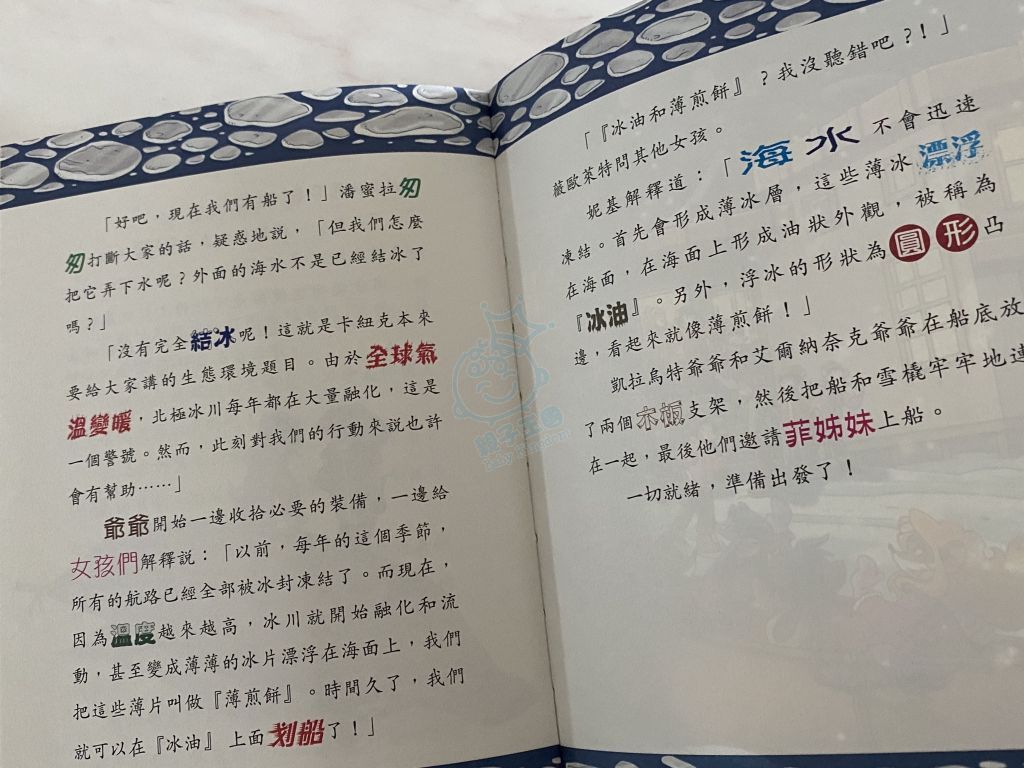 「好吧，現在我們有船了！」潘蜜拉匆
匆打斷大家的話，疑惑地說，「但我們怎麼
把它弄下水呢？外面的海水不是已經結冰了
嗎？」
「沒有完全結冰呢！這就是卡紐克本來
要給大家講的生態環境題目。由於全球氣
溫變暖，北極冰川每年都在大量融化，這是
一個警號。然而，此刻對我們的行動來說也許
會有幫助……」
爺爺開始一邊收拾必要的裝備，一邊給
女孩們解釋說：「以前，每年的這個季節，
所有的航路已經全部被冰封凍結了。而現在，
因為溫度越來越高，冰川就開始融化和流
動，甚至變成薄薄的冰片漂浮在海面上，我們
把這些薄片叫做『薄煎餅』。時間久了，我們
就可以在『冰油』上面划船了！」
「『冰油和薄煎餅』？我沒聽錯吧？！」
薇歐萊特問其他女孩。
妮基解釋道：「海水不會迅速
凍結。首先會形成薄冰層，這些薄冰漂浮
在海面，在海面上形成油狀外觀，被稱為
『冰油』。另外，浮冰的形狀為圓形凸
邊，看起來就像薄煎餅！」
凱拉烏特爺爺和艾爾納奈克爺爺在船底放
了兩個木板支架，然後把船和雪橇牢牢地連
在一起，最後他們邀請菲姊妹上船。
一切就緒，準備出發了！
親子王國